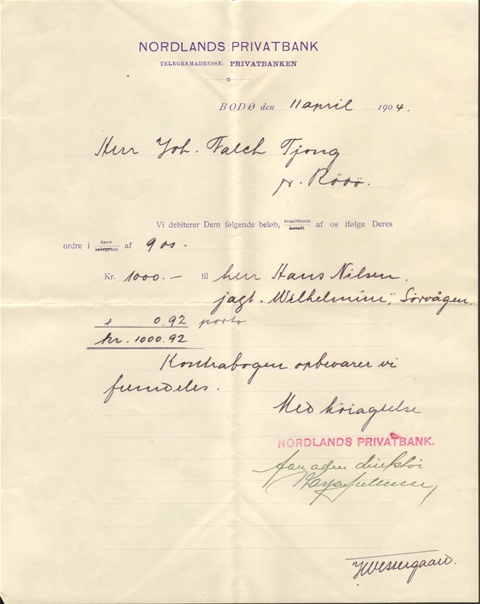 NORDLANDS PRIVATBANK
TELEGRAMADRESSE: PRIVATBANKEN
BODØ den 11 april 1904.
Herr Joh. Falch Tjong
pr. Rödö.
Vi debiterer Dem følgende beløb, remitteret betalt af os ifølge Deres
ordre i brev telegram af 9 ds.
Kr. 1000.— til herr Hans Nilsen,
jagt. "Wilhelmine", Sörvågen.
+ 0.92 porto
Kr. 1000.92
Kontrabogen opbevarer vi
fremdeles.
Med höiagtelse
NORDLANDS PRIVATBANK.
direktör
JWestergaard.